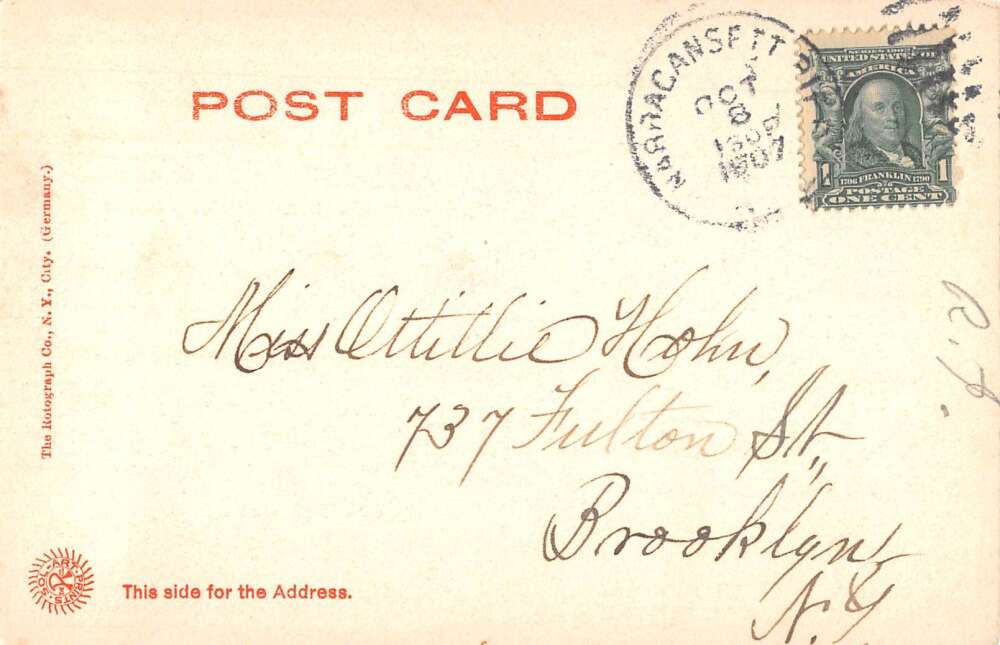 POST CARD
NARRAGANSETT PIER
OCT
8
1907
SERIES 1902
UNITED STATES OF
AMERICA
1 1706 FRANKLIN 1790 1
POSTAGE
ONE CENT
The Rotograph Co., N. Y., City. (Germany.)
Miss Ottillie Hohn,
737 Fulton St.,
Brooklyn,
N.Y
SOL-ART PRINTS
This side for the Address.